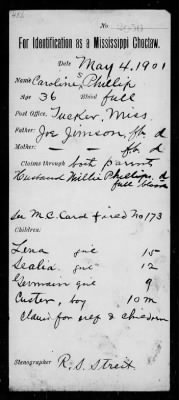 No.
For Identification as a Mississippi Choctaw.
Date May 4, 1901
Name Caroline S Phillip
Age 36 Blood full
Post Office, Tucker, Miss.
Father: Joe Jimison, fb d
Mother: — fb d
Claims through both parents
Husband Willie Phillip, d
full blood
See M.C. Card filed No 173
Children:
Lena girl 15
Sealia girl 12
girl 9
Custer, boy 10 m
Claim for self & children
Stenographer R. S. Streit